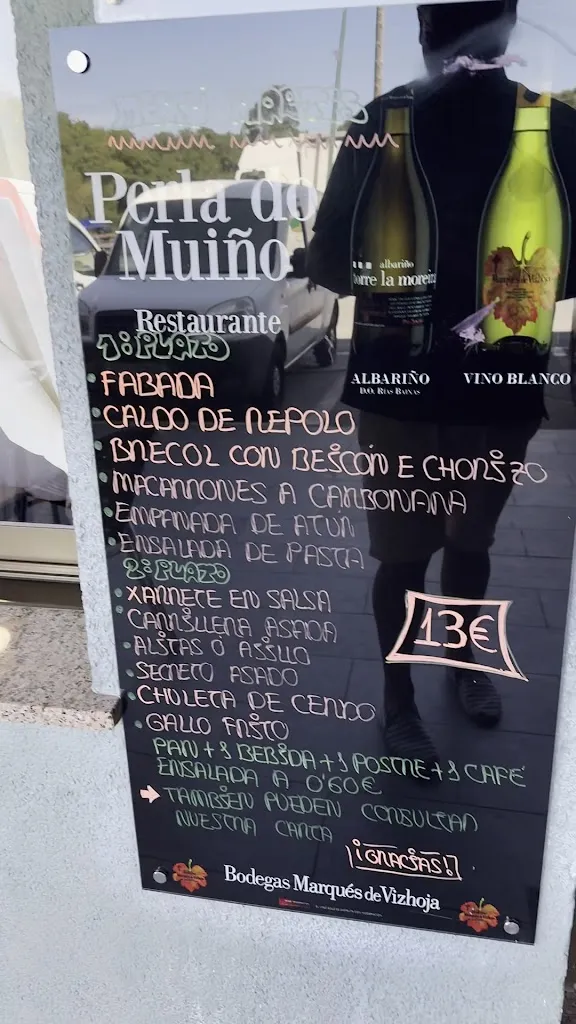 Perla do
Muiño
Restaurante
albariño
torre la moreira
ALBARIÑO
D.O. RÍAS BAIXAS
VINO BLANCO
1º PLATO
• FABADA
• CALDO DE REPOLO
• BRECOL CON BEICON E CHORIZO
• MACARRONES A CARBONARA
• EMPANADA DE ATUN
• ENSALADA DE PASTA
2º PLATO
• XARRETE EN SALSA
• CARRILLERA ASADA
• ALITAS Ó AJILLO
• SECRETO ASADO
• CHULETA DE CERDO
• GALLO FRITO
13€
PAN + 1 BEBIDA + 1 POSTRE + 1 CAFÉ
ENSALADA A 0'60€
→ TAMBIÉN PUEDEN CONSULTAR
NUESTRA CARTA
¡GRACIAS!
Bodegas Marqués de Vizhoja